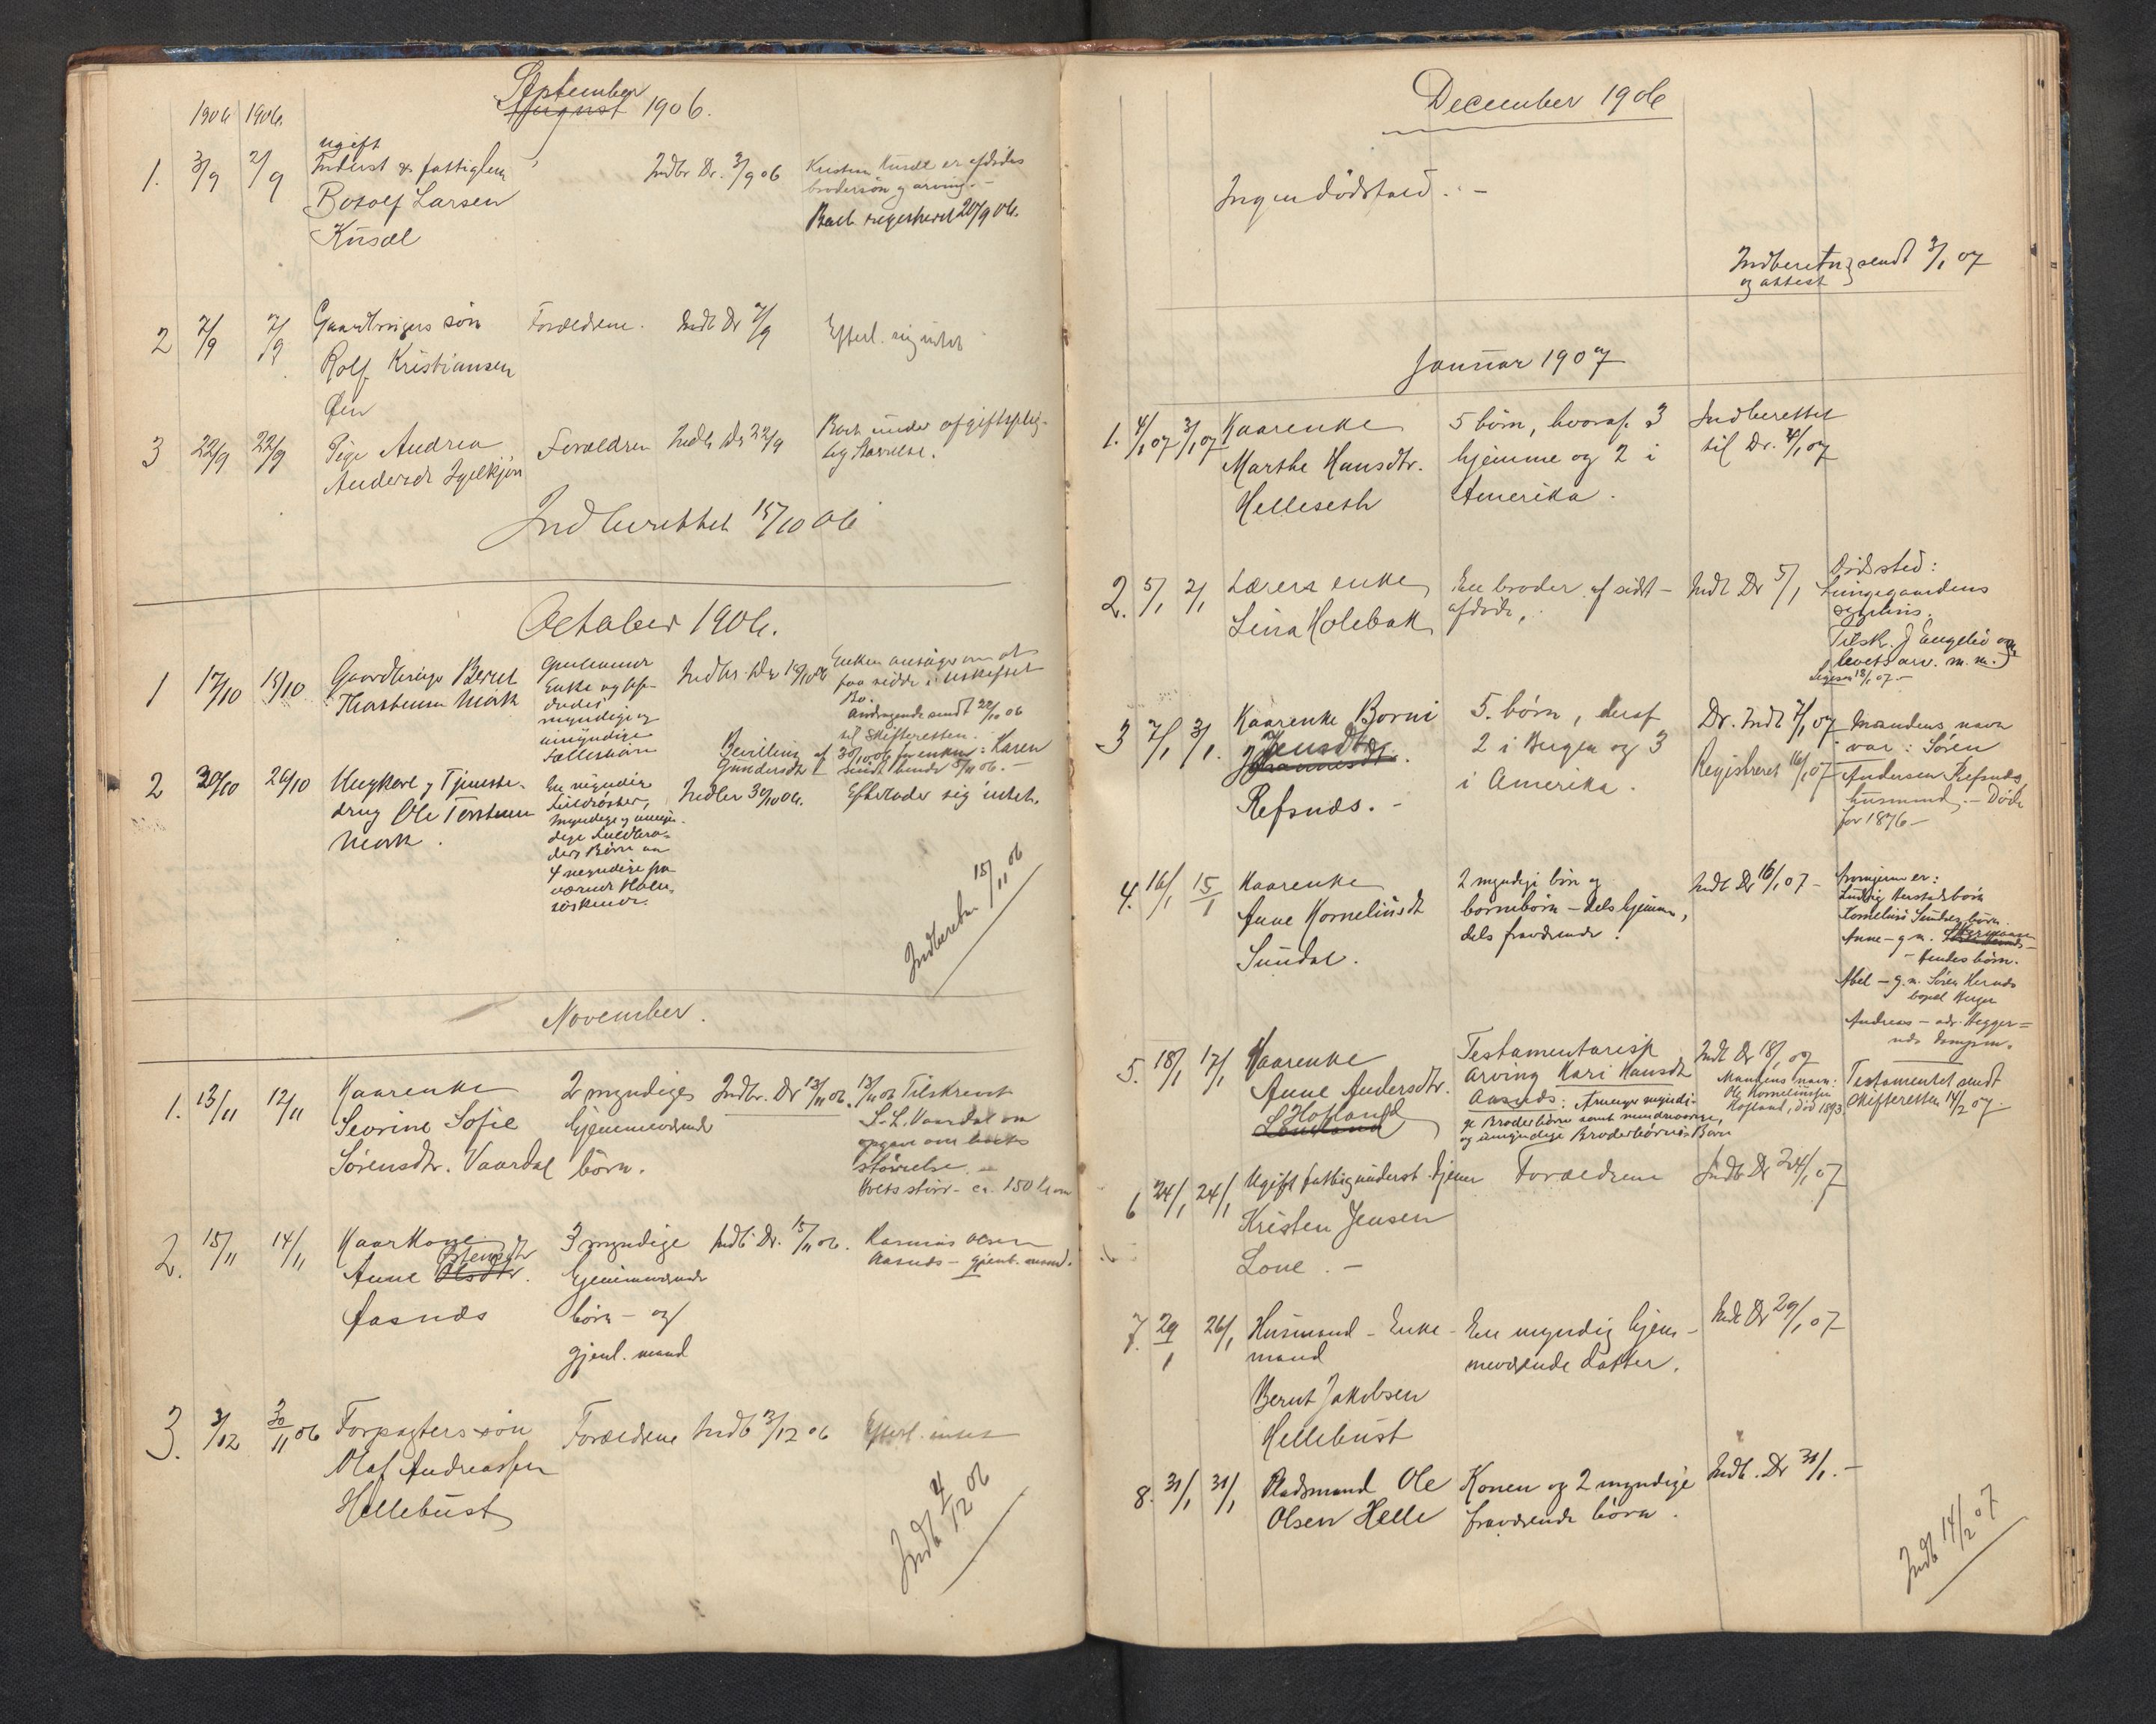 September
August 1906.
1906 1906.
ugift
1. 3/9 2/9 Inderst & fattiglem Indbr Dr. 3/9 06 Kristian Kusdt er afdødes
Botolf Larsen brodersøn og arving. –
Kusdt Boet registreret 20/9 06.
2 7/9 7/9 Gaardbrugers søn Forældrene. Indb Dr 7/9 Efterl. sig intet
Rolf Kristiansen
Øen
3 22/9 22/9 Pige Andrea Forældrene Indb Dr 22/9 Boets under afgiftsplig-
Andersdr tig størrelse.
Indberettet 15/10 06
October 1906.
1 17/10 15/10 Gaardbruger Bernt Gjenlevende Indb. Dr 18/10 06 Enken ansøger om at
Thorstensen Mork Enke og faa sidde i uskiftet
Bo.
myndige og Andragende sendt 22/10 06
umyndige til Skifteretten.
Fællesbørn Bevilling af 30/10 06 for enken: Karen
Gundersdtr sendt hende 5/11 06. –
2 30/10 26/10 Ungkarl og Tjeneste- En myndig Indber 30/10 06. Efterlader sig intet.
dreng Ole Torstensen
Mork. myndige og umyn-
dige
Børn
4 myndige fra-
værende
søskende.
Indberettet 15/11 06
November.
1. 13/11 12/11 Kaarenke 2 myndige Indbr. Dr 13/11 06. 13/11 06 Tilskrevet
Severine Sofie hjemmeværende S. L. Vaardal om
Sørensdtr. Vaardal børn. opgave om boets
størrelse
Boets størr – ca. 150 kr
2. 15/11 14/11 Kaarkone 3 myndige Indb Dr. 15/11 06. Rasmus Olsen
Anne Olsdtr. hjemmeværende Aasnæs – gjenl. mand.
Aasnæs børn – og
gjenl. mand
3. 3/12 30/11 06 Forpagters søn Forældrene Indb 3/12 06 Efterl. intet
Olaf Andreassen
Hellebust
Indb 4/12 06
December 1906
Ingen dødsfald. –
Indberetn. sendt 3/1 07
og attest
Januar 1907
1. 4/1 07 3/1 07 Kaarenke 5 børn, hvoraf 3 Indberettet
Marthe Hansdtr. hjemme og 2 i til Dr. 4/1 07
Helleseth Amerika.
2. 5/1 2/1 Lærers enke En broder af sidst- Indb Dr 5/1 Dødssted:
Lina Holebak afdøde. Lungegaardens
sygehus.
Tilsk. J Engelsø om
boets arv. m. m.
18/1 07. –
3 7/1 3/1. Kaarenke Borni 5. børn, deraf Dr. Indb 7/1 07 Mandens navn
Jensdtr 2 i Bergen og 3 Registreret 16/1 07 var: Søren
Johannesdtr. i Amerika. Andersen Refsnæs
Refsnæs. – husmand. – Døde
før 1876 –
4. 16/1 15/1 Kaarenke 2 myndige børn og Indb Dr 16/1 07 – Arvingerne er:
Anne Kornelius dt børnebørn – dels hjemme, Ludvig Herstads børn
Sundal. dels fraværende. Kornelius Sundes børn
Anne – g. m.
– Aendes børn.
Abel – g. m. Søren Hernæs
bopæl Bergen
Andreas – adr. Hegger=
5. 18/1 17/1 Kaarenke Testamentarisk Indb Dr 18/1 07
Anne Andersdtr. Arving Kari Hansdt Mandens navn: Testamentet sendt
Hofland Aasnæs: Arvinger myndi- Ole Korneliussen Skifteretten 14/2 07.
ge Broderbørn samt mindreaarige, Hofland, død 1893
og umyndige Broderbørns Børn
6 24/1 24/1 Ugift fattigunderst. tjener Forældrene Indb Dr 24/1 07
Kristen Jensen
Lone. –
7. 29/1 26/1 Husmand – Enke- En myndig hjem- Indb Dr 29/1 07
mand meværende datter.
Bernt Jakobsen
Hellebust
8. 31/1 31/1 Pladsmand Ole Konen og 2 myndige Indb. Dr 31/1. –
Olsen Helle fraværende børn.
Indb 14/2 07